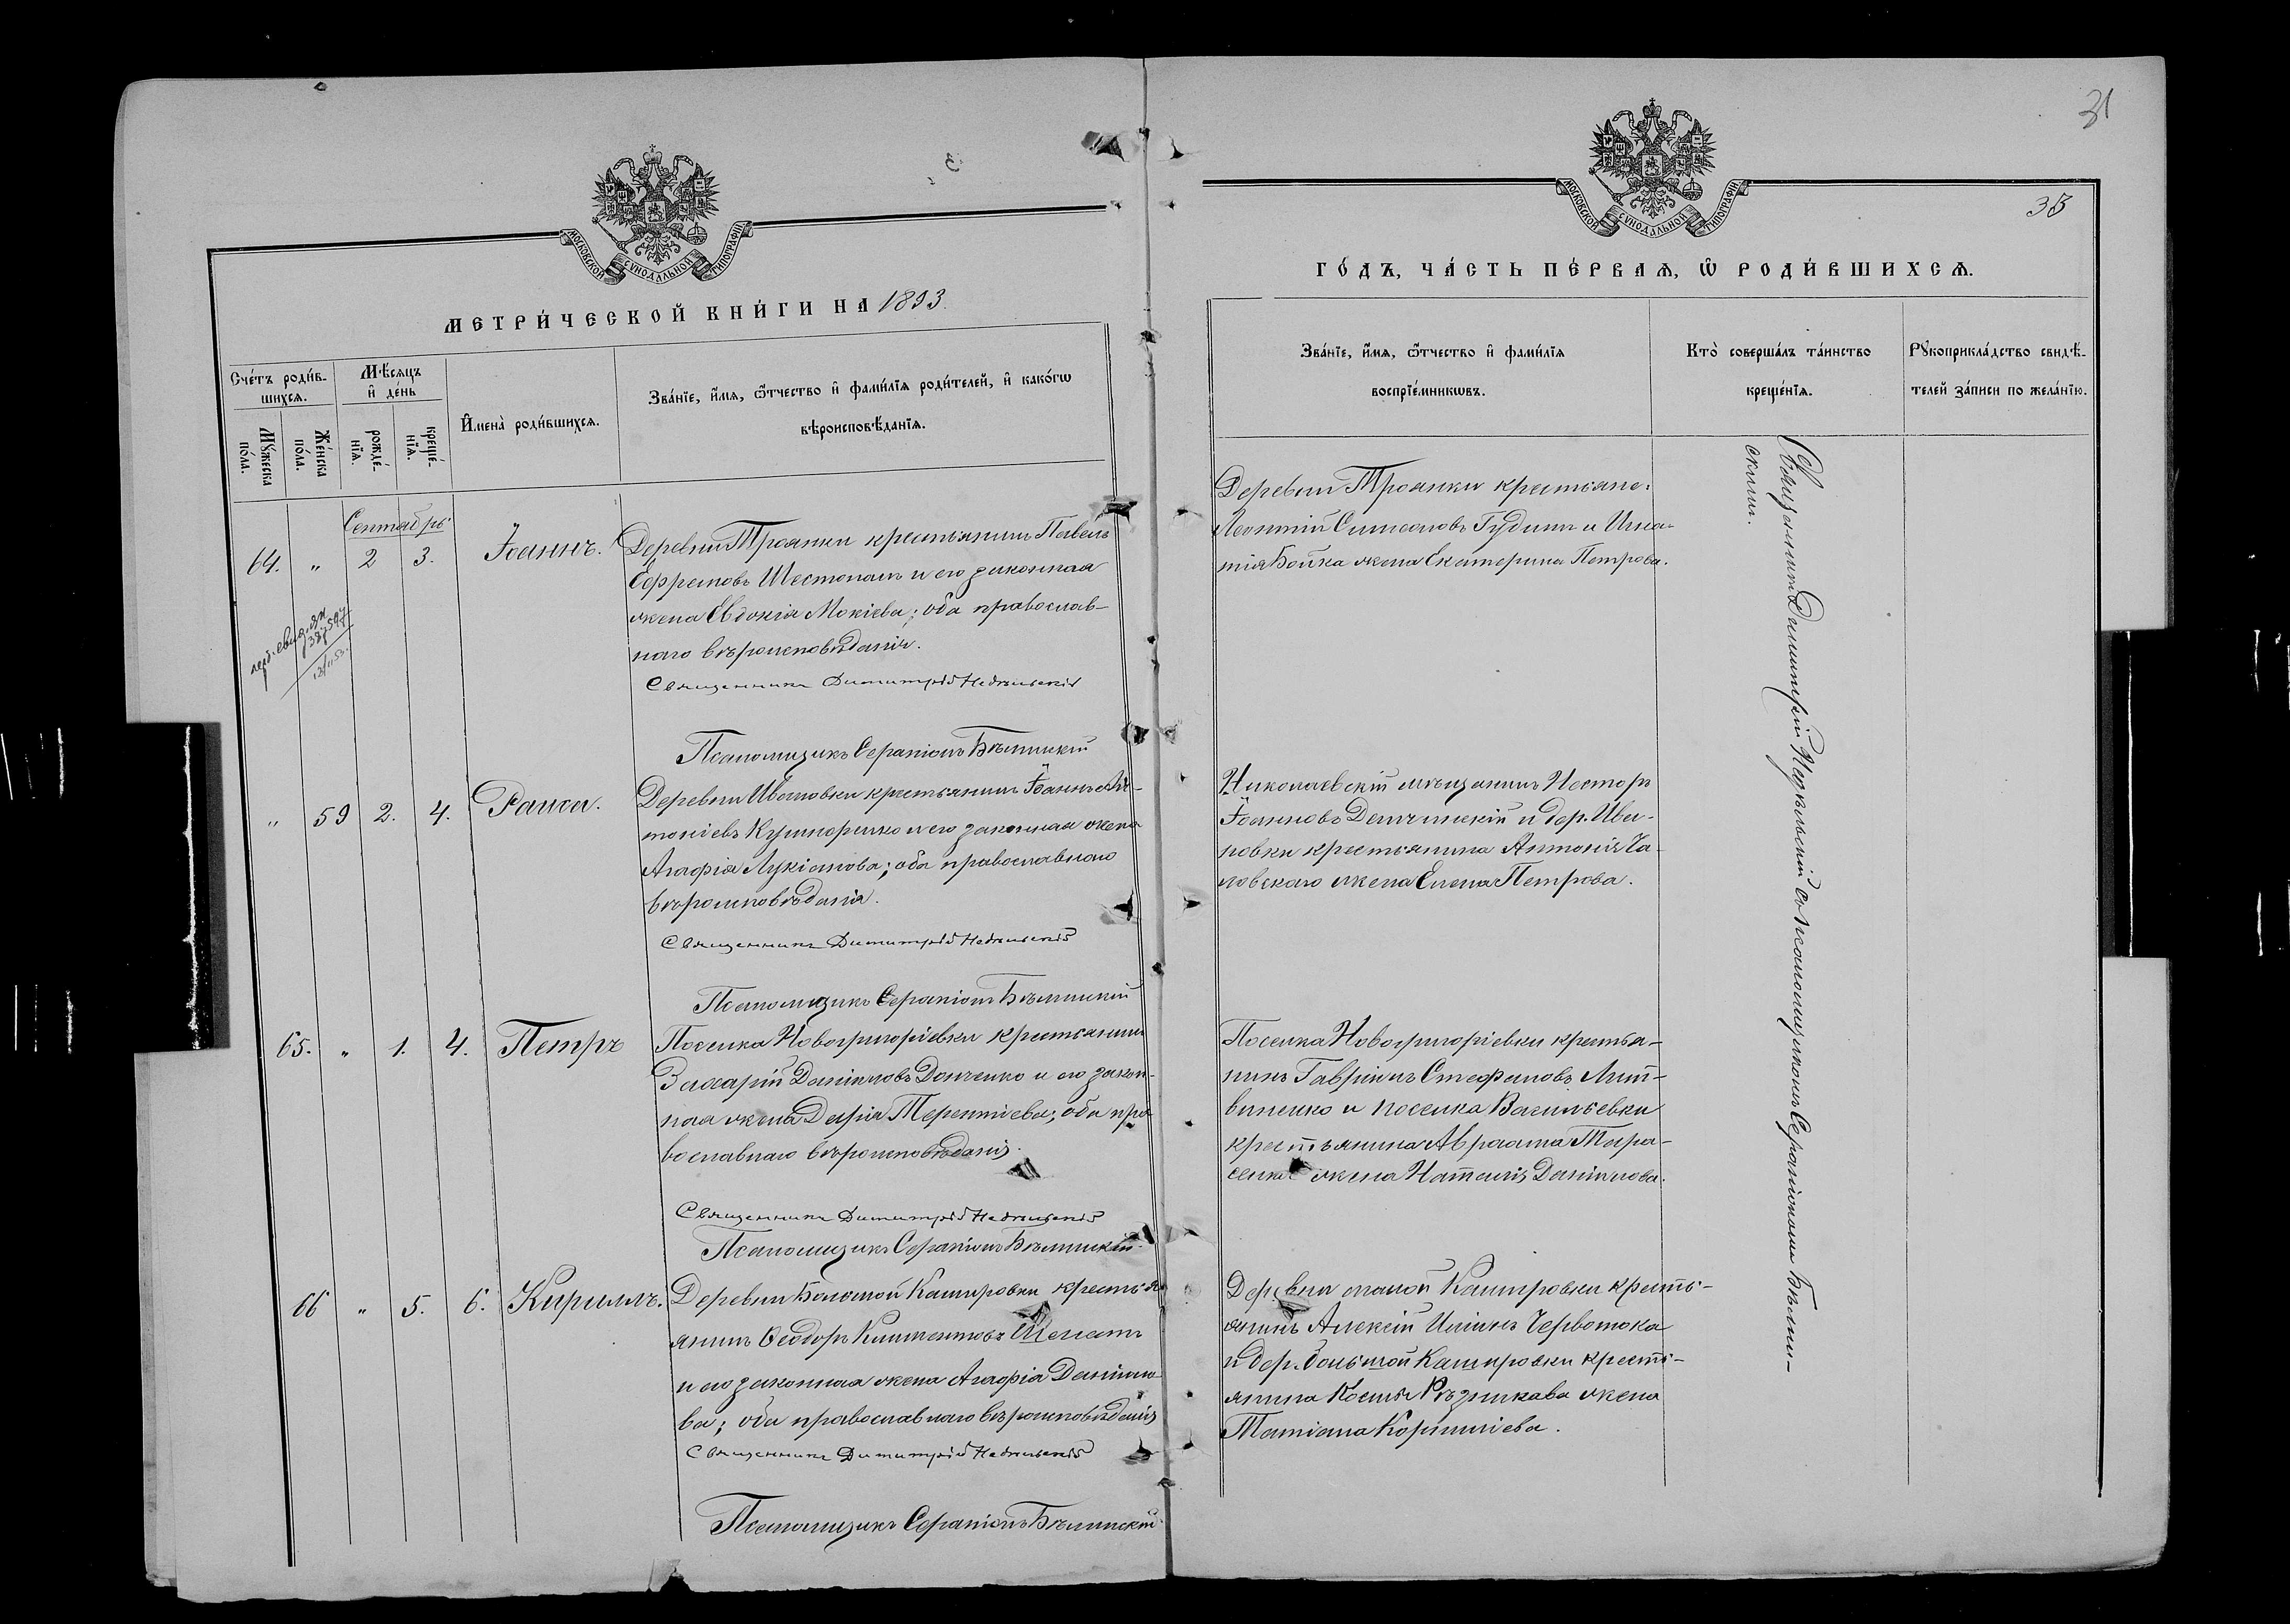 31
35
МОСКОВСКОЙ СѴНОДАЛЬНОЙ ТИПОГРАФІИ
МЕТРИ́ЧЕСКОЙ КНИ́ГИ НА 1893.
Сче́тъ роди́в-
шихсѧ.
Мѣ́сѧцъ
и҆ де́нь
Мꙋ́жеска
по́ла.
Же́нска
по́ла.
рожде́-
нїѧ.
креще́-
нїѧ.
И҆мена̀ роди́вшихсѧ.
Зва́нїе, и҆́мѧ, ѻ҆́тчество и҆ фами́лїѧ роди́телей, и҆ како́гѡ
вѣроисповѣ́данїѧ.
Сентябрь
64. „ 2 3. Іоаннъ.
Деревни Троянки крестьянинъ Павелъ
Ефремовъ Шестопалъ и его законная
жена Евдокія Мокіева; оба православ-
наго вѣроисповѣданія.
Священникъ Димитрій Недѣльскій
Псаломщикъ Серапіонъ Бѣлинскій
„ 59 2. 4. Раиса.
Деревни Ивановки крестьянинъ Іоаннъ Ан-
тоніевъ Кушнаренко и его законная жена
Агафія Лукіанова; оба православнаго
вѣроисповѣданія.
Священникъ Димитрій Недѣльскій
Псаломщикъ Серапіонъ Бѣлинскій
65. „ 1. 4. Петръ
Поселка Новогригоріевки крестьянинъ
Захарій Даніиловъ Донченко и его закон-
ная жена Дарія Терентіева; оба пра-
вославнаго вѣроисповѣданія.
Священникъ Димитрій Недѣльскій
Псаломщикъ Серапіонъ Бѣлинскій
66 „ 5. 6. Кириллъ.
Деревни Большой Кашировки кресть-
янинъ Ѳеодоръ Климентовъ
и его законная жена Агафія Даніило-
ва; оба православнаго вѣроисповѣданія
Священникъ Димитрій Недѣльскій
Псаломщикъ Серапіонъ Бѣлинскій
МОСКОВСКОЙ СѴНОДАЛЬНОЙ ТИПОГРАФІИ
ГО́ДЪ, ЧА́СТЬ ПЕ́РВАѦ, Ѡ҆ РОДИ́ВШИХСѦ.
Зва́нїе, и҆́мѧ, ѻ҆́тчество и҆ фами́лїѧ
воспрїе́мникѡвъ.
Кто̀ соверша́лъ та́инство
креще́нїѧ.
Рꙋкоприкла́дство свидѣ́-
телей за́писи по жела́нїю.
Деревни Троянки крестьяне:
Леонтій Симеоновъ Гудимъ и Игна-
тія Бойка жена Екатерина Петрова.
Николаевскій мѣщанинъ Несторъ
Іоанновъ и дер. Ива-
новки крестьянина Антонія Ча-
ловскаго жена Елена Петрова.
Поселка Новогригоріевки крестья-
нинъ Гавріилъ Стефановъ Лит-
виненко и поселка Васильевки
крестьянина Авраама Тара-
сенка жена Наталія Даніилова.
Деревни малой Кашировки кресть-
янинъ Алексій Илліинъ Червотока
и дер. большой Кашировки кресть-
янина Космы Рѣзникава жена
Татіана Корниліева.
Священникъ Димитрій Недѣльскій съ псаломщикомъ Серапіономъ Бѣлин-
скимъ.